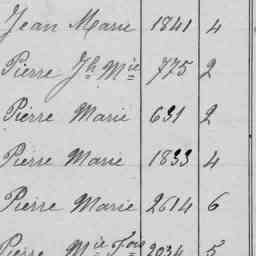 Jean Marie 1841 4
Pierre Jh Mie 775 2
Pierre Marie 631 2
Pierre Marie 1833 4
Pierre Marie 2614 6
Pierre Mie Fois 2034 5